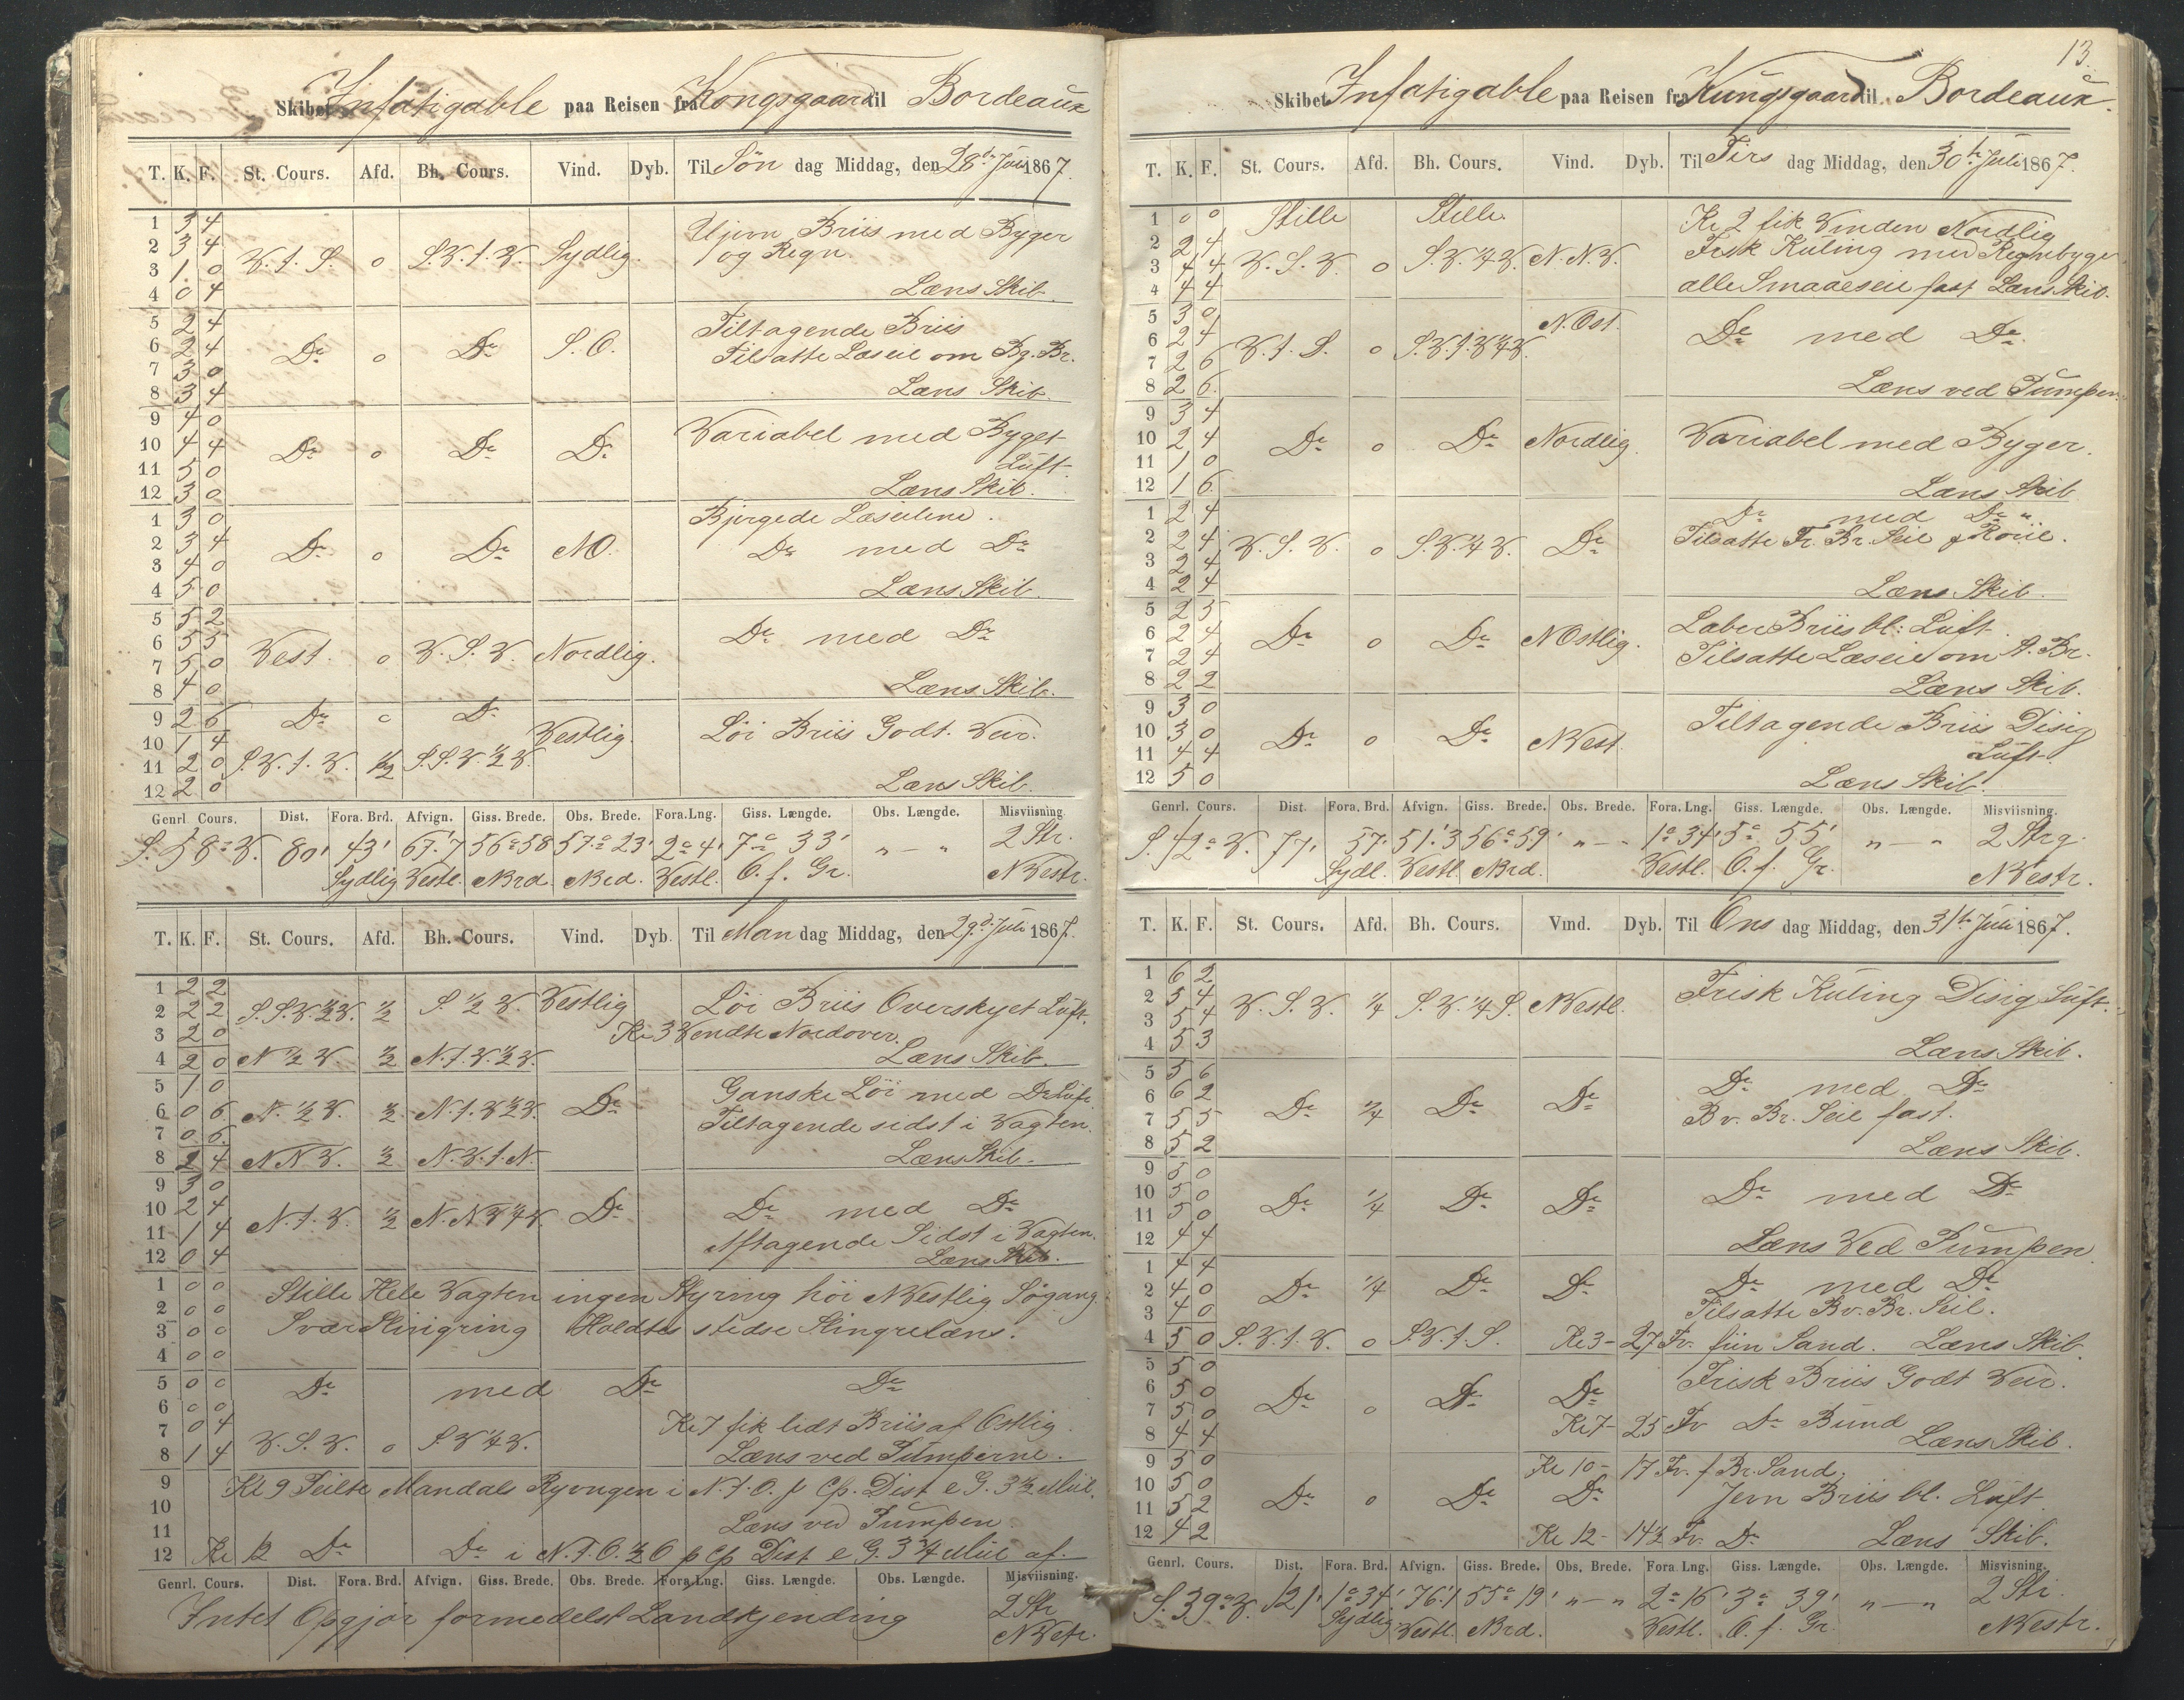 Skibet Infatigable paa Reisen fra Kongsgaard til Bordeaux
T. K. F. St. Cours. Afd. Bh. Cours. Vind. Dyb. Til Søn dag Middag, den 28de Juli 1867.
1 3 4
2 3 4 V. t. S. o S.V. t. V. Sydlig. Ujevn Briis med Byger
3 1 0 og Regn.
4 0 4 Læns Skib.
5 2 4 Tiltagende Briis
6 2 4 Do o Do S.O. Tilsatte Læseil om Bg. Br.
7 3 0
8 3 4 Læns Skib.
9 4 0
10 4 4 Do o Do Do Variabel med Byget
11 5 0 Luft.
12 3 0 Læns Skib.
1 3 0 Bjergede Læseilene.
2 3 4 Do o Do NO. Do med Do
3 4 0
4 5 0 Læns Skib.
5 5 2
6 5 5 Vest. o V.S.V. Nordlig. Do med Do
7 5 0
8 4 0 Læns Skib.
9 2 6 Do o Do
10 1 4 Vestlig. Löi Briis Godt Veir.
11 2 0 S.V. t. V. 1/2 S.S.V. 1/2 V.
12 2 0 Læns Skib.
Genrl. Cours. Dist. Fora. Brd. Afvign. Giss. Brede. Obs. Brede. Fora. Lng. Giss. Længde. Obs. Længde. Misviisning.
S. 58° V. 80' 43' 67'.7 56° 58 57° 23' 2° 4' 7° 33' „ — „ 2 Str.
Sydlig Vestl. Nrd. Nrd. Vestl. O. f. Gr. NVestr.
T. K. F. St. Cours. Afd. Bh. Cours. Vind. Dyb. Til Man dag Middag, den 29d. Juli 1867.
1 2 2
2 2 2 S.S.V. 1/2 V. 1/2 S. 1/2 V. Vestlig Löi Briis Overskyet Luft.
3 2 0 Kl 3 Vendte Nordover.
4 2 0 N 1/2 V. 1/2 N. t. V. 1/2 V. Læns Skib.
5 1 0 Ganske Löi med Do Luft.
6 0 6 N. 1/2 V. 1/2 N. t. V 1/2 V. Do Tiltagende sidst i Vagten.
7 0 6
8 2 4 NNV. 1/2 N.V. t. N. Læns Skib.
9 3 0
10 2 4 N. t. V. 1/2 N.NV 1/4 V. Do Do med Do
11 1 4 Aftagende Sidst i Vagten.
12 0 4 Læns Skib.
1 0 0 Stille Hele Vagten ingen Styring höi NVestlig Sögang.
2 0 0
3 0 0 Svær Slingring Holdtes stedse Slingrelæns.
4 0 0
5 0 0 Do med Do Do
6 0 0
7 0 4 Kl 7 fik lidt Briis af Ostlig
8 1 4 V.S.V. o S.V 1/4 V. Læns ved Pumperne.
9 Kl 9 Peilte Mandals Ryvngen i N. t. O. p Cp. Dist e G. 3 1/2 Miil.
10
11 Læns ved Pumpen
12 Kl 12 Do Do i N. t. O. 1/2 O p Cp Dist e G. 3 3/4 Miil af.
Genrl. Cours. Dist. Fora. Brd. Afvign. Giss. Brede. Obs. Brede. Fora. Lng. Giss. Længde. Obs. Længde. Misviisning.
Intet Opgjör formedelst Landkjending 2 Str
NVestr.
13.
Skibet Infatigable paa Reisen fra Kungsgaard til Bordeaux.
T. K. F. St. Cours. Afd. Bh. Cours. Vind. Dyb. Til Tirs dag Middag, den 30te Juli 1867.
1 0 0 Stille Stille. Kl 2 fik Vinden Nordlig
2 2 4 Frisk Kuling med Regnbyger
3 4 4 V.S.V. o S.V. 1/4 V. N.N.V.
4 4 4 alle Smaaeseil fast Læns Skib.
5 3 0 N.Ost.
6 2 4 Do med Do
7 2 6 V. t. S. o S.V. t. V 1/4 V.
8 2 6 Læns ved Pumpen.
9 3 4
10 2 4 Do o Do Nordlig. Variabel med Byger.
11 1 0
12 1 6 Læns Skib
1 2 4 Do med Do
2 2 4 V.S.V. o S.V. 1/4 V. Do Tilsatte Fr. Br. Seil & Roiil.
3 2 4
4 2 4 Læns Skib.
5 2 5 Laber Briis bl: Luft.
6 2 4 Do o Do NOstlig.
7 2 4 Tilsatte Læseil om A. Br.
8 2 2 Læns Skib.
9 3 0 Tiltagende Briis Disig
10 3 0 Do o Do NVest.
11 4 4 Luft.
12 5 0 Læns Skib.
Genrl. Cours. Dist. Fora. Brd. Afvign. Giss. Brede. Obs. Brede. Fora. Lng. Giss. Længde. Obs. Længde. Misviisning.
S. 42° V. 77' 57' 51'.3 56° 59' „ — „ 1° 34' 5° 55' „ — „ 2 Strg.
Sydl. Vestl. Nrd. Vestl. O. f. Gr. NVestr.
T. K. F. St. Cours. Afd. Bh. Cours. Vind. Dyb. Til Ons dag Middag, den 31te Juli 1867.
1 6 2
2 5 4 V.S.V. 1/4 S.V. 1/4 S. NVestl. Frisk Kuling Disig Luft.
3 5 4
4 5 3 Læns Skib.
5 5 6 Do med Do
6 6 2 Do 1/4 Do Do
7 5 5 Bv. Br. Seil fast.
8 5 2 Læns Skib.
9 5 0
10 5 0 Do 1/4 Do Do Do med Do
11 5 0
12 4 4 Læns Ved Pumpen
1 4 4 Do med Do
2 4 0 Do 1/4 Do Do
3 4 0 Tilsatte Bv. Br. Seil.
4 5 0 S.V. t. V. o S.V. t. S. Kl 3 - 27 Fv. fiin Sand. Læns Skib.
5 5 0 Frisk Briis Godt Veir.
6 5 0 Do o Do Do
7 5 0 Kl 7 - 25 Fv Do Bund
8 4 4 Læns Skib.
9 5 0 Kl 10 - 17 Fv. f Br. Sand.
10 5 0 Do o Do Do
11 5 2 Jevn Briis bl. Luft
12 4 2 Kl 12 - 14 1/2 Fv. Do Læns Skib.
Genrl. Cours. Dist. Fora. Brd. Afvign. Giss. Brede. Obs. Brede. Fora. Lng. Giss. Længde. Obs. Længde. Misvisning.
S. 39° V. 121' 1° 34' 76'.1 55° 19' „ — „ 2° 16' 3° 39' „ — „ 2 Str
Sydlig Vestl. Nrd. Vestl. O. f. Gr. NVestr.